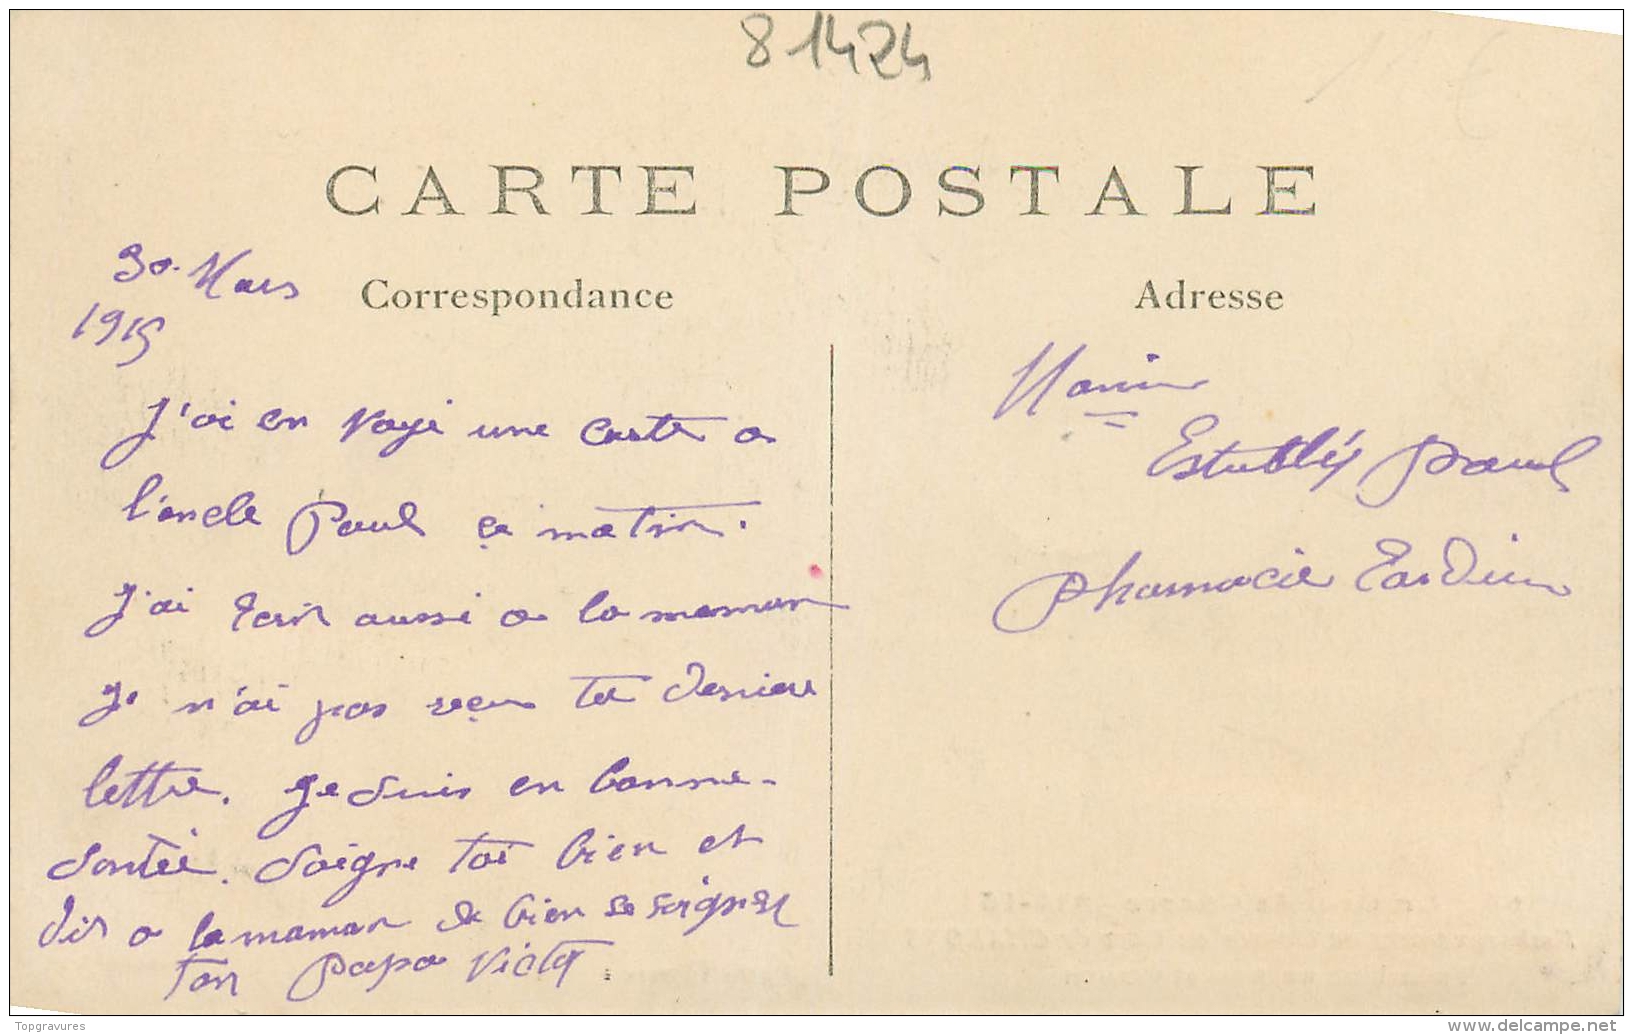 81424
CARTE POSTALE
Correspondance
Adresse
30 Mars
1915
J'ai en voyé une carte a
l'oncle Paul ce matin.
J'ai écrit aussi a la maman
Je n'ai pas reçu ta derniere
lettre. Je suis en bonne
santée. Soigne toi bien et
dis a la maman de bien se soigner
Ton papa Victor
Paul
pharmacie Tardieu
Topgravures
www.delcampe.net